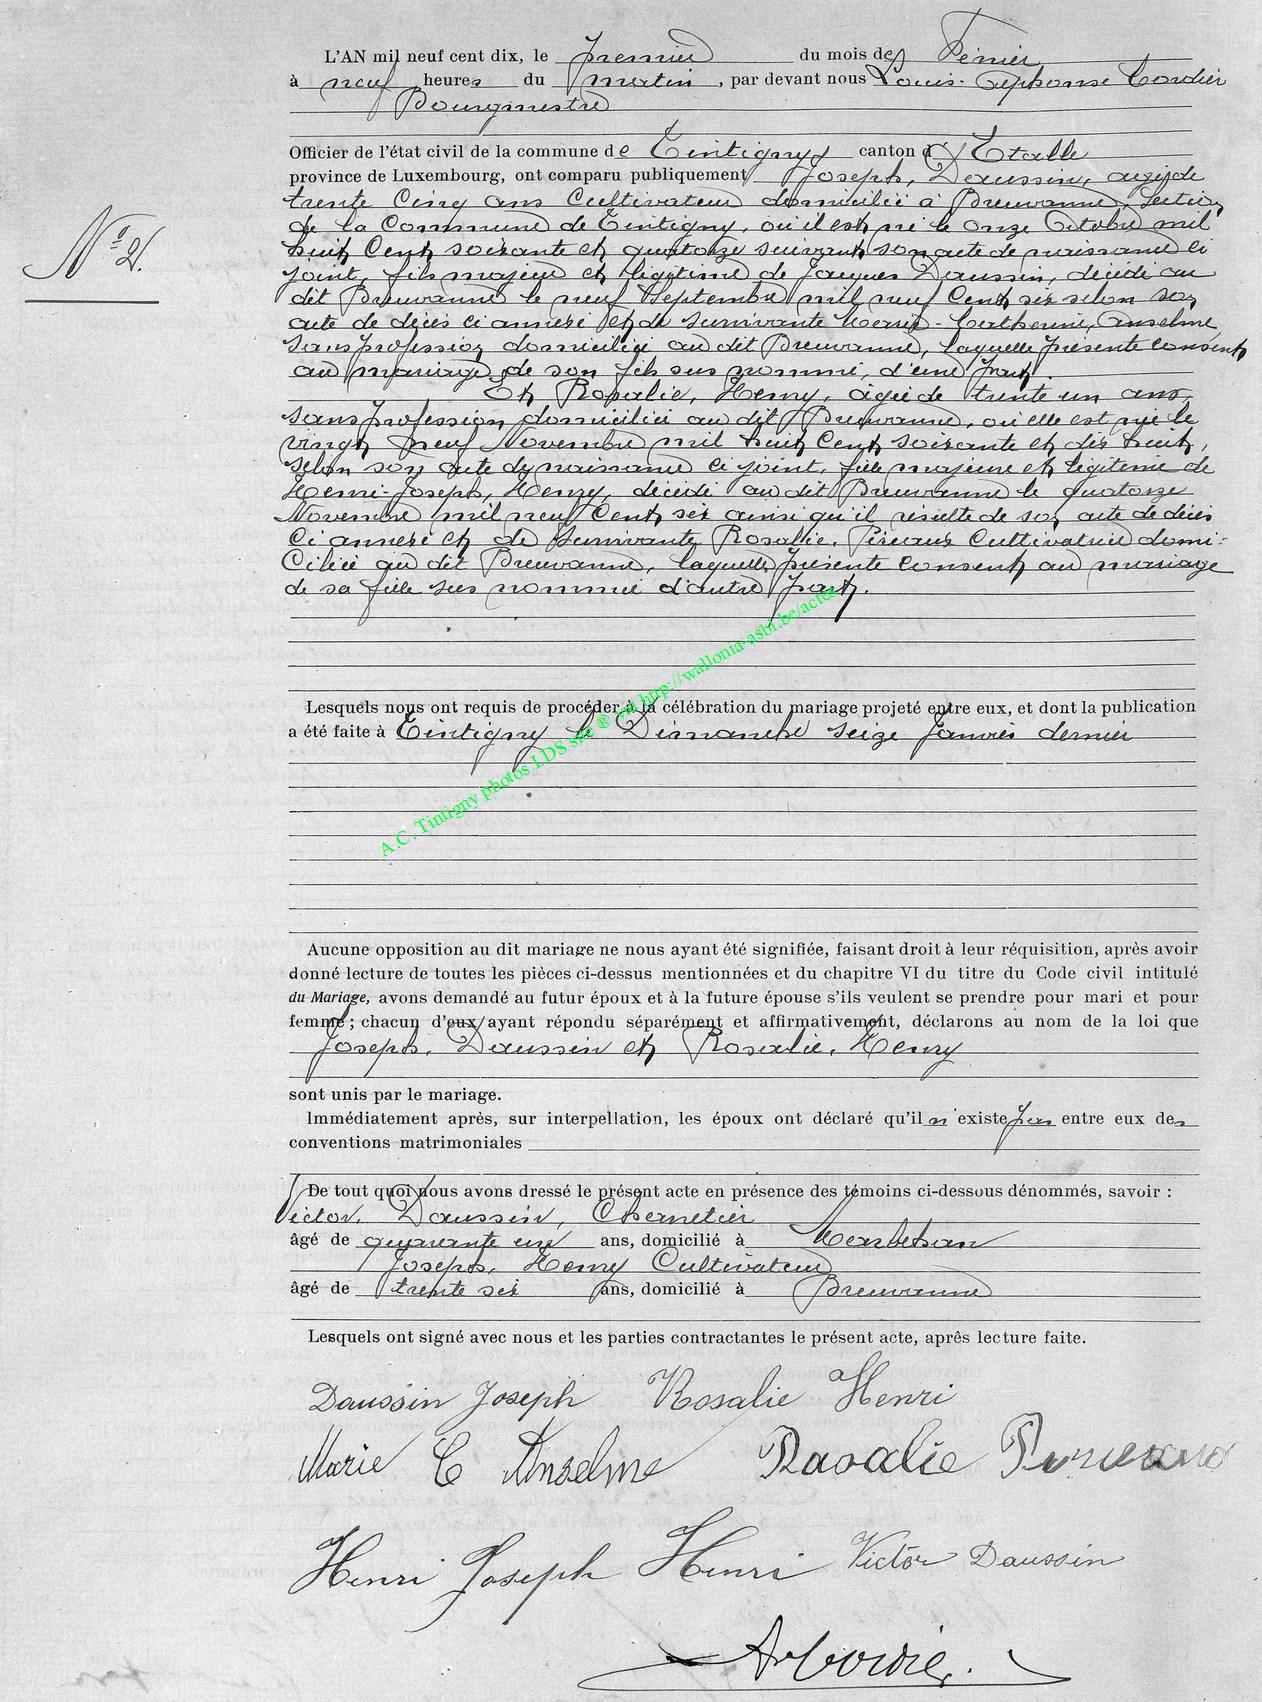 L'AN mil neuf cent dix, le premier du mois de Février
à neuf heures du matin, par devant nous Louis-Alphonse Cordier
Bourgmestre
Officier de l'état civil de la commune de Tintigny canton d'Etalle
province de Luxembourg, ont comparu publiquement Joseph, Daussin, agé de
trente cinq ans Cultivateur domicilié à Breuvanne, Section
de la Commune de Tintigny, où il est né le onze Octobre mil
huit Cent soixante et quatorze suivant son acte de naissance ci
joint, fils majeur et légitime de Jacques Daussin, décédé au
dit Breuvanne le neuf Septembre mil neuf Cent six selon son
acte de décès ci annexé et de survivante Marie-Catherine, Anselme,
sans profession domiciliée au dit Breuvanne, laquelle présente consent
au mariage de son fils sus nommé, d'une part.
Et Rosalie, Henry, âgée de trente un ans,
sans profession domiciliée au dit Breuvanne, où elle est née le
vingt neuf Novembre mil huit Cent soixante et dix huit,
selon son acte de naissance ci joint, fille majeure et légitime de
Henri-Joseph, Henry, décédé au dit Breuvanne le quatorze
Novembre mil neuf Cent six ainsi qu'il résulte de son acte de décès
ci annexé et de survivante Rosalie, Cultivatrice domi-
ciliée au dit Breuvanne, laquelle présente consent au mariage
de sa fille sus nommée d'autre part.
Lesquels nous ont requis de procéder à la célébration du mariage projeté entre eux, et dont la publication
a été faite à Tintigny le Dimanche seize Janvier dernier
A.C. Tintigny photos LDS site ® via http://wallonia-asbl.be/actes
Aucune opposition au dit mariage ne nous ayant été signifiée, faisant droit à leur réquisition, après avoir
donné lecture de toutes les pièces ci-dessus mentionnées et du chapitre VI du titre du Code civil intitulé
du Mariage, avons demandé au futur époux et à la future épouse s'ils veulent se prendre pour mari et pour
femme; chacun d'eux ayant répondu séparément et affirmativement, déclarons au nom de la loi que
Joseph, Daussin et Rosalie, Henry
sont unis par le mariage.
Immédiatement après, sur interpellation, les époux ont déclaré qu'il n'existe pas entre eux de
conventions matrimoniales
De tout quoi nous avons dressé le présent acte en présence des témoins ci-dessous dénommés, savoir :
Victor, Daussin, Charretier
âgé de quarante un ans, domicilié à Marbehan
Joseph, Henry Cultivateur
âgé de trente six ans, domicilié à Breuvanne
Lesquels ont signé avec nous et les parties contractantes le présent acte, après lecture faite.
N° 2.
Daussin Joseph Rosalie Henri
Marie C Anselme Rasalie
Henri Joseph Henri Victor Daussin